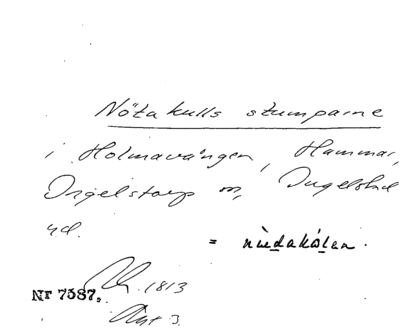 Nöta kulls stumparne
i Holmavången, Hammar,
Ingelstorp sn, Ingelstad
hd.
= nùdakùlan.
1813
Nr 7587.
Akt 3.